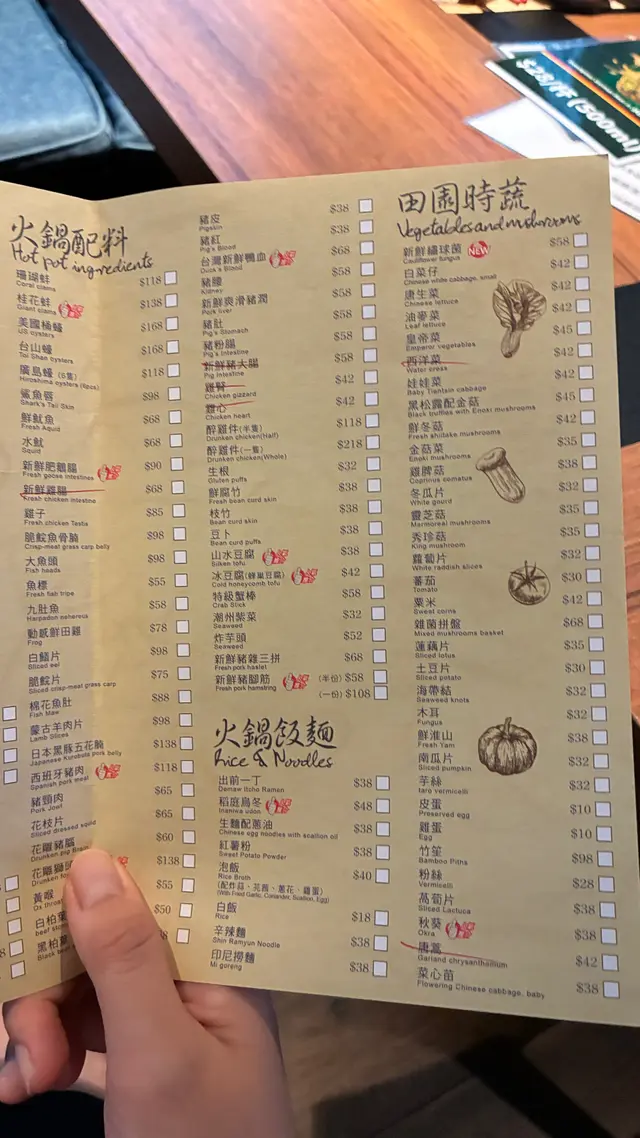 火鍋配料
Hot pot ingredients
珊瑚蚌 $118
Coral clams
桂花蚌 $138
Giant clams
美國桶蠔 $168
US oysters
台山蠔 $168
Toi Shan oysters
廣島蠔（6隻） $118
Hiroshima oysters (6pcs)
鯊魚唇 $98
Shark's Tail Skin
鮮魷魚 $68
Fresh Squid
水魷 $68
Squid
新鮮肥鵝腸 $90
Fresh goose intestines
新鮮雞腸 $68
Fresh chicken intestine
雞子 $85
Fresh chicken Testis
脆鯇魚骨腩 $98
Crisp-meat grass carp belly
大魚頭 $98
Fish heads
魚標 $55
Fish fries
九肚魚 $58
Harpadon nehereus
動感鮮田雞 $78
Frog
白鱔片 $98
Sliced eel
脆鯇片 $75
Sliced crisp-meat grass carp
棉花魚肚 $88
Fish Maw
蒙古羊肉片 $98
Lamb Slices
日本黑豚五花腩 $138
Japanese Kurobuta pork belly
西班牙豬肉 $118
Spanish pork meat
豬頸肉 $65
Pork Jowl
花枝片 $65
Sliced dressed squid
花雕豬膶 $60
Drunken pig
花雕獅頭 $138
Drunken
黃喉 $55
Ox throat
白柏葉 $50
beef
黑柏葉
Black beef
豬皮 $38
Pigskin
豬紅 $38
Pig's Blood
台灣新鮮鴨血 $68
Duck's Blood
豬腰 $58
Kidney
新鮮爽滑豬潤 $58
Pork liver
豬肚 $58
Pig's Stomach
豬粉腸 $58
Pig's Intestine
新鮮豬大腸 $58
Pig Intestine
雞腎 $42
Chicken gizzard
雞心 $42
Chicken heart
醉雞件(半隻) $118
Drunken chicken(Half)
醉雞件(一隻) $218
Drunken chicken(Whole)
生根 $32
Gluten puffs
鮮腐竹 $38
Fresh bean curd skin
枝竹 $38
Bean curd skin
豆卜 $38
Bean curd puffs
山水豆腐 $38
Silken tofu
冰豆腐(蜂巢豆腐) $42
Cold honeycomb tofu
特級蟹棒 $58
Crab Stick
潮州紫菜 $32
Seaweed
炸芋頭 $52
Seaweed
新鮮豬雜三拼 $68
Fresh pork haslet
新鮮豬腳筋 (半份) $58
Fresh pork hamstring
(一份) $108
火鍋飯麵
Rice & Noodles
出前一丁 $38
Demaw Itcho Ramen
稻庭烏冬 $48
Inaniwa udon
生麵配蔥油 $38
Chinese egg noodles with scallion oil
紅薯粉 $38
Sweet Potato Powder
泡飯 $40
Rice Broth
(配炸菇、芫茜、蔥花、雞蛋)
(With Fried Garlic, Coriander, Scallion, Egg)
白飯 $18
Rice
辛辣麵 $38
Shin Ramyun Noodle
印尼撈麵 $38
Mi goreng
田園時蔬
Vegetables and mushrooms
新鮮繡球菌 NEW $58
Cauliflower fungus
白菜仔 $42
Chinese white cabbage, small
唐生菜 $42
Chinese lettuce
油麥菜 $42
Leaf lettuce
皇帝菜 $45
Emperor vegetables
西洋菜 $42
Water cress
娃娃菜 $42
Baby Tientsin cabbage
黑松露配金菇 $45
Black truffles with Enoki mushrooms
鮮冬菇 $42
Fresh shiitake mushrooms
金菇菜 $35
Enoki mushrooms
雞脾菇 $38
Coprinus comatus
冬瓜片 $32
White gourd
靈芝菇 $35
Marmoreal mushrooms
秀珍菇 $35
King mushroom
蘿蔔片 $32
White raddish slices
蕃茄 $30
Tomato
粟米 $42
Sweet corns
雜菌拼盤 $68
Mixed mushrooms basket
蓮藕片 $35
Sliced lotus
土豆片 $30
Sliced potato
海帶結 $32
Seaweed knots
木耳 $32
Fungus
鮮淮山 $38
Fresh Yam
南瓜片 $32
Sliced pumpkin
芋絲 $32
taro vermicelli
皮蛋 $10
Preserved egg
雞蛋 $10
Egg
竹笙 $98
Bamboo Piths
粉絲 $28
Vermicelli
萵筍片 $38
Sliced Lactuca
秋葵 $38
Okra
唐蒿 $42
Garland chrysanthemum
菜心苗 $38
Flowering Chinese cabbage, baby
$28/杯(500ml)